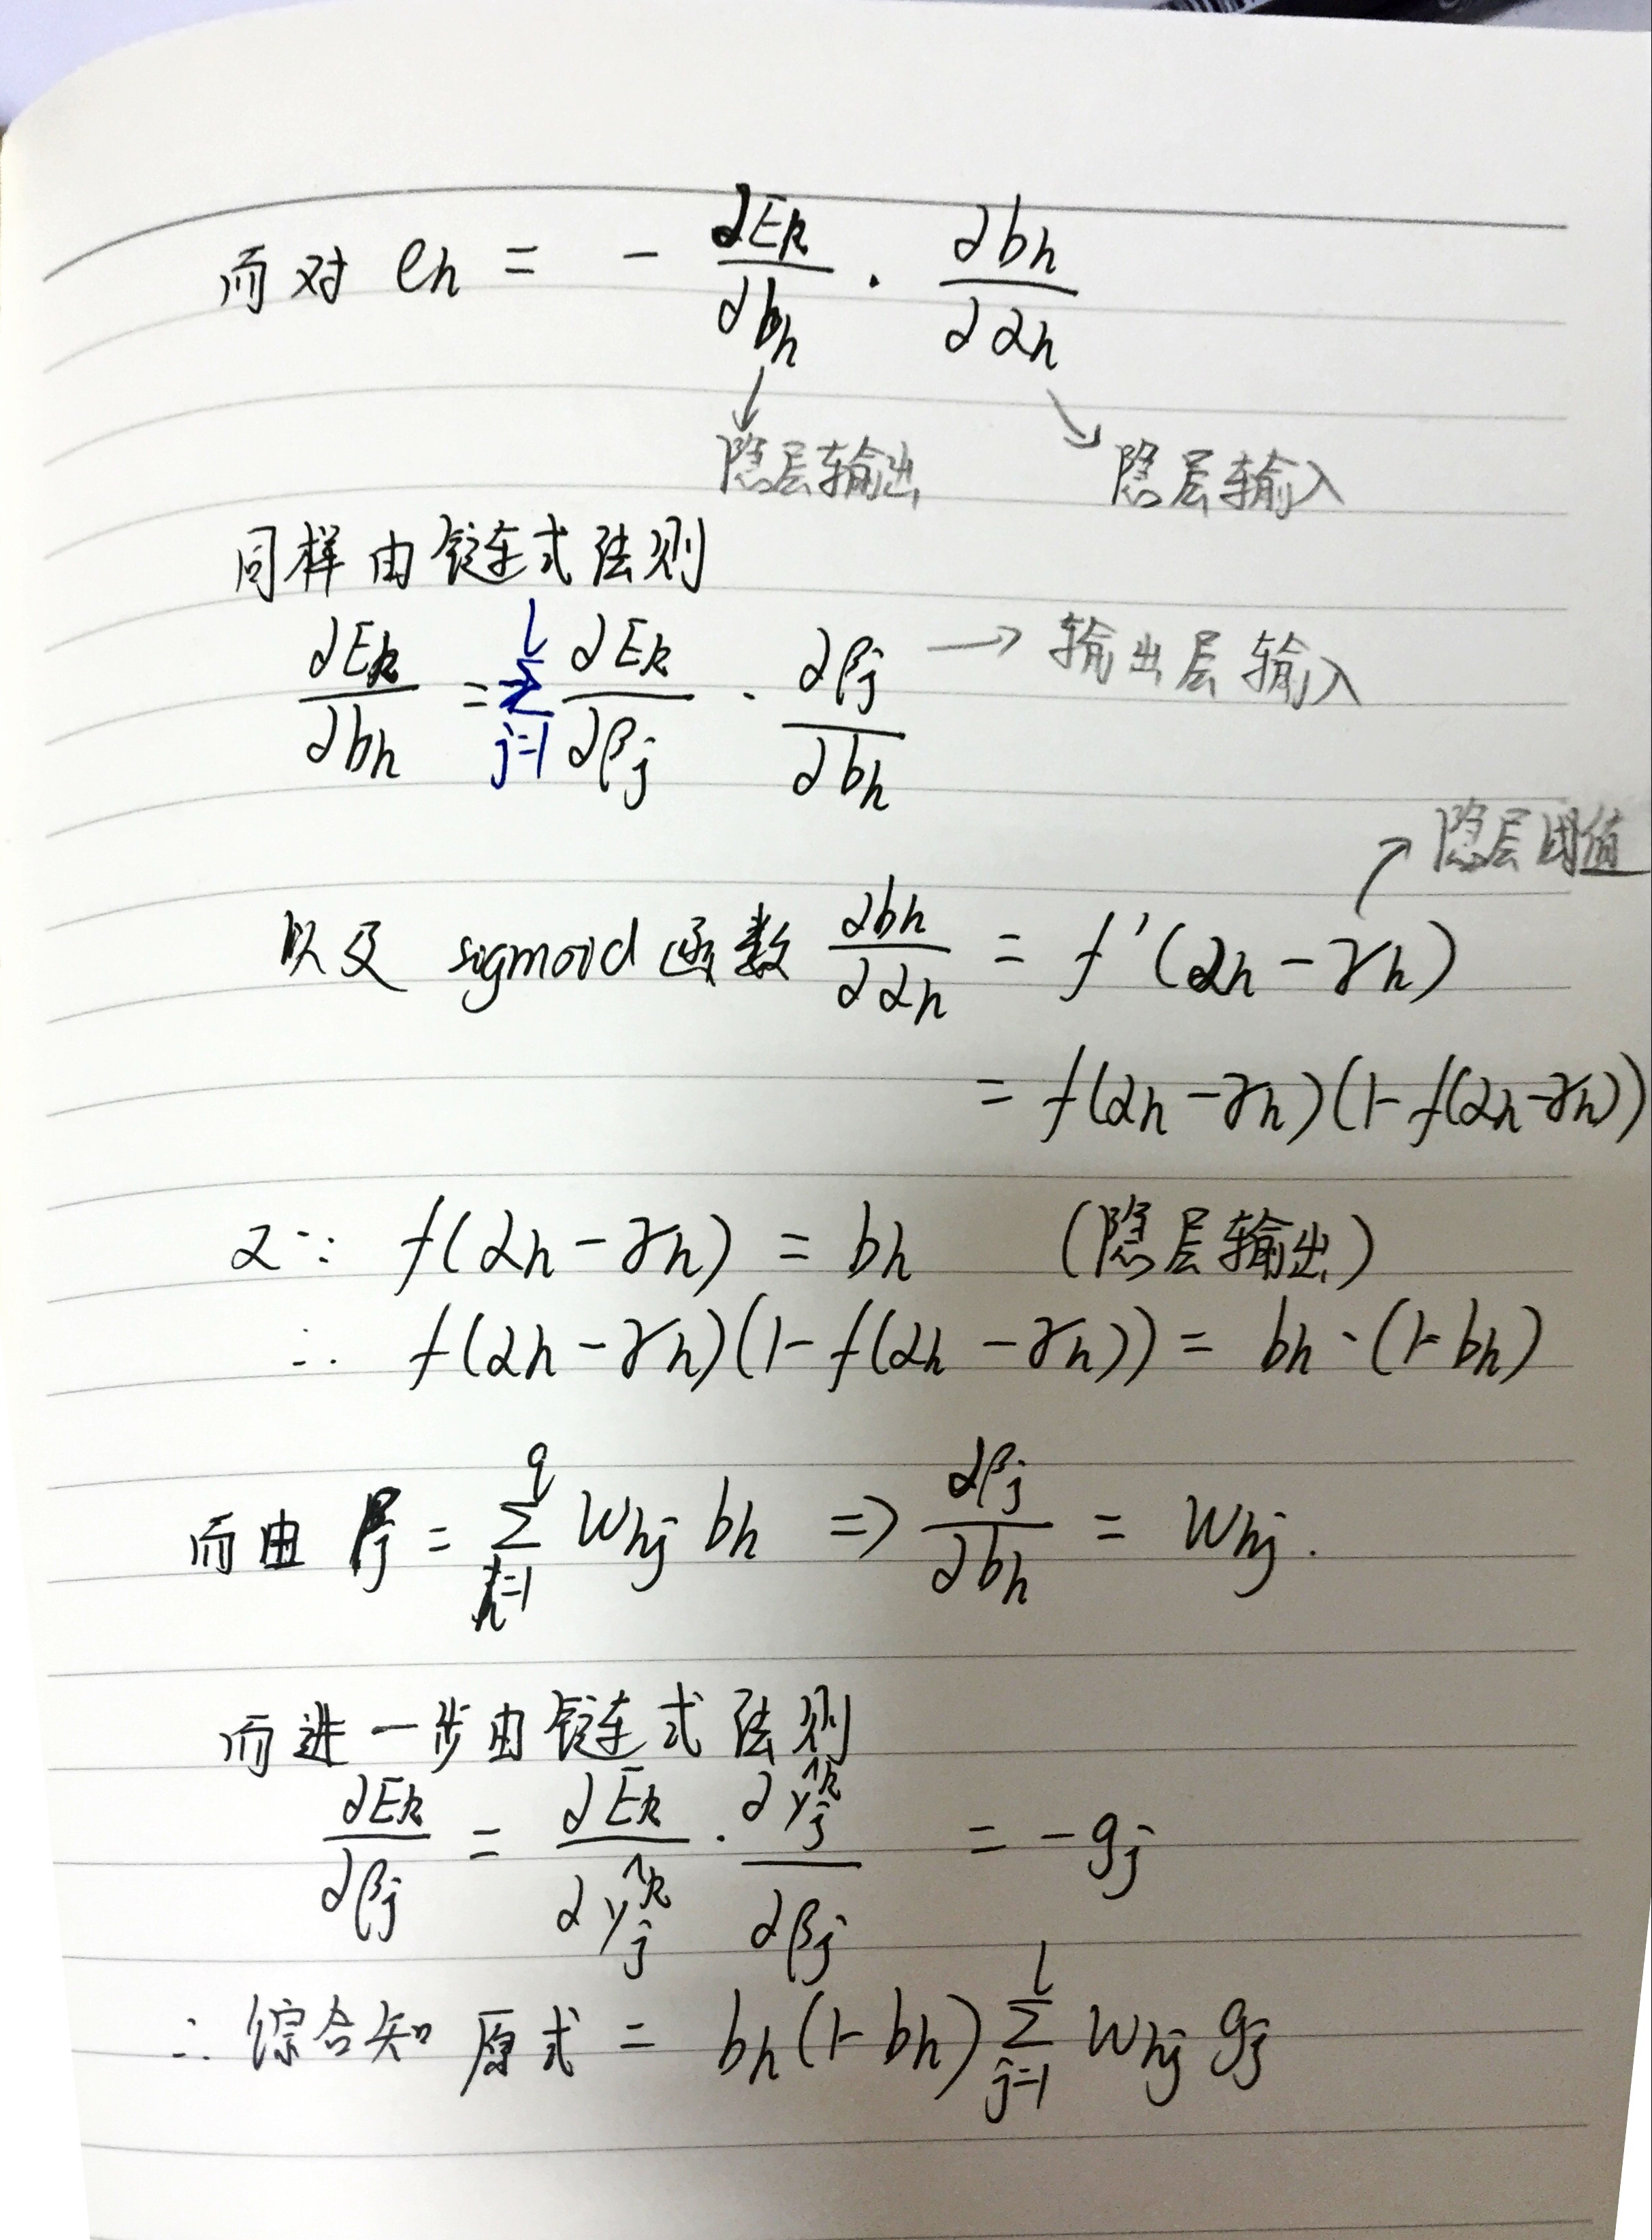 而对 eh = - ∂Ek/∂bh · ∂bh/∂αh
隐层输出 隐层输入
同样由链式法则
∂Ek/∂bh = Σ_{j=1}^{l} ∂Ek/∂βj · ∂βj/∂bh → 输出层输入
隐层阈值
以及 sigmoid 函数 ∂bh/∂αh = f'(αh - γh)
= f(αh - γh)(1 - f(αh - γh))
又∵ f(αh - γh) = bh (隐层输出)
∴ f(αh - γh)(1 - f(αh - γh)) = bh · (1 - bh)
而由 βj = Σ_{h=1}^{q} Whj bh => ∂βj/∂bh = Whj.
而进一步由链式法则
∂Ek/∂βj = ∂Ek/∂ŷj^k · ∂ŷj^k/∂βj = -gj
∴ 综合知 原式 = bh(1 - bh) Σ_{j=1}^{l} Whj gj